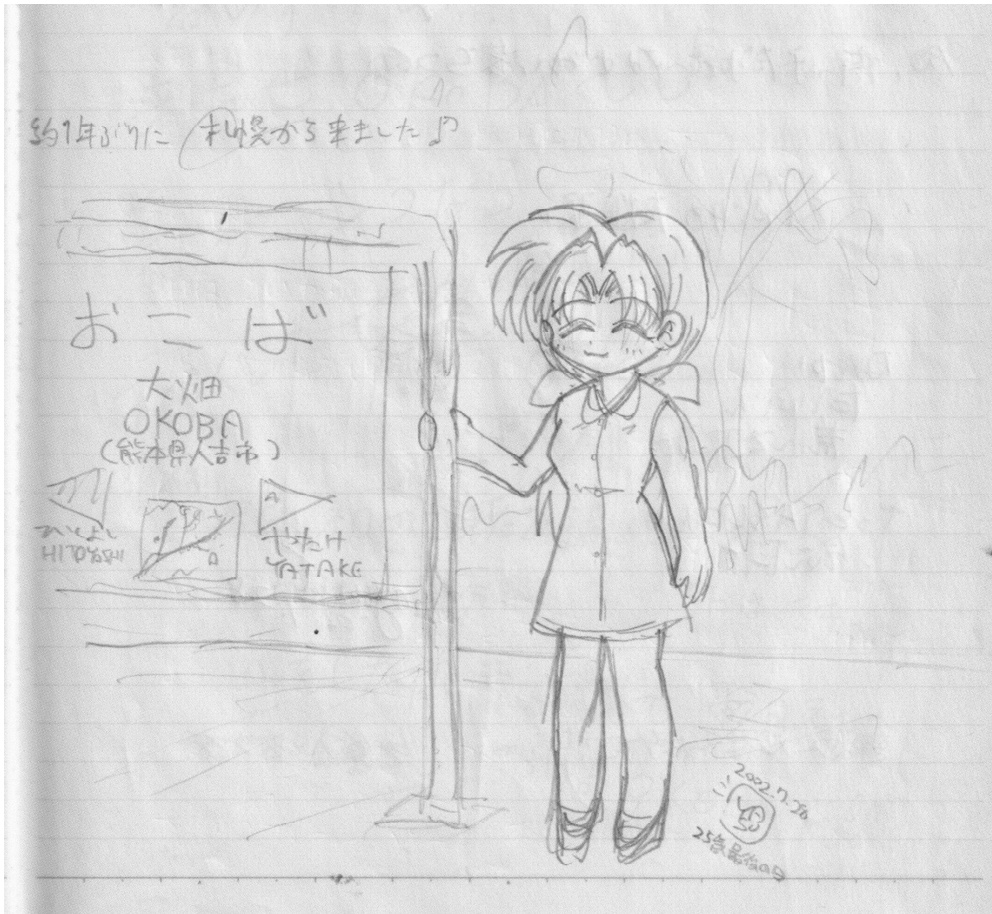 約1年ぶりに 札幌から来ました♪
おこば
大畑
OKOBA
(熊本県人吉市)
ひとよし
HITOYOSHI
やたけ
YATAKE
25歳最後の日